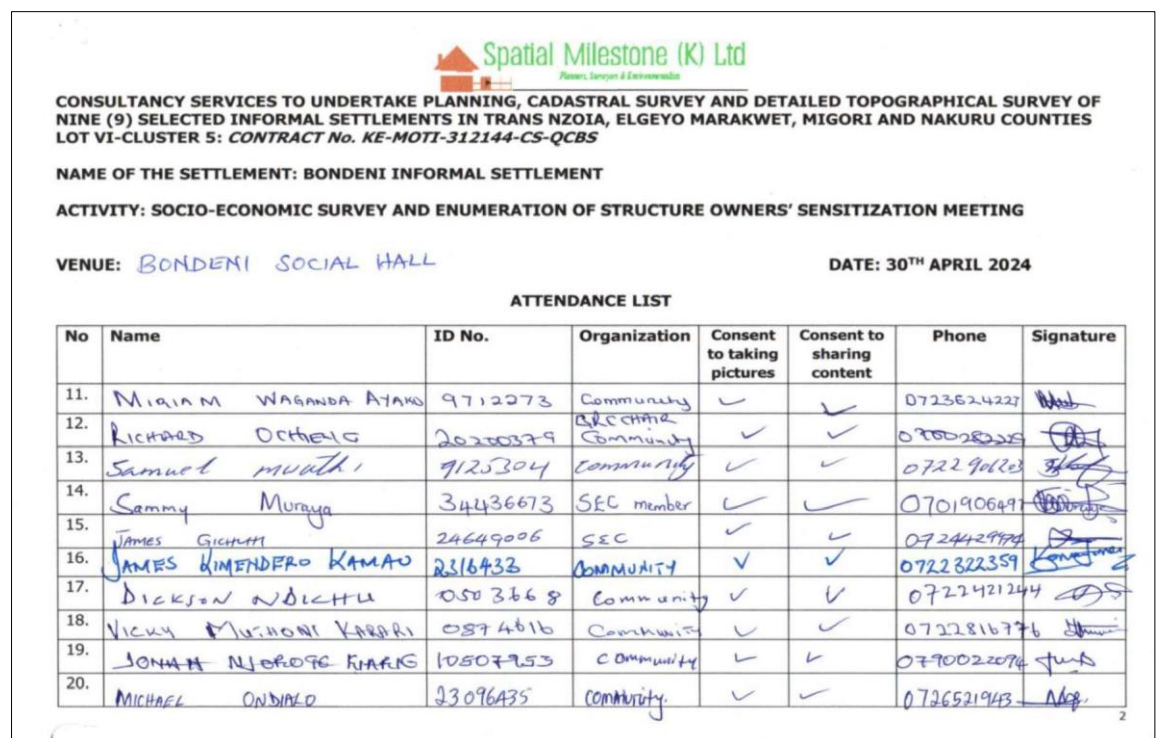 Spatial Milestone (K) Ltd
Planners, Surveyors & Environmentalists
CONSULTANCY SERVICES TO UNDERTAKE PLANNING, CADASTRAL SURVEY AND DETAILED TOPOGRAPHICAL SURVEY OF
NINE (9) SELECTED INFORMAL SETTLEMENTS IN TRANS NZOIA, ELGEYO MARAKWET, MIGORI AND NAKURU COUNTIES
LOT VI-CLUSTER 5: CONTRACT No. KE-MOTI-312144-CS-QCBS
NAME OF THE SETTLEMENT: BONDENI INFORMAL SETTLEMENT
ACTIVITY: SOCIO-ECONOMIC SURVEY AND ENUMERATION OF STRUCTURE OWNERS' SENSITIZATION MEETING
VENUE: BONDENI SOCIAL HALL DATE: 30TH APRIL 2024
ATTENDANCE LIST
No Name ID No. Organization Consent to taking pictures Consent to sharing content Phone Signature
11. MIRIAM WAGANDA AYAKO 9712273 Community ✓ ✓ 0723624227
12. RICHARD OCHIENG 20200379 GRC CHAIR Community ✓ ✓
13. Samuel muathi 9125304 community ✓ ✓ 0722906203
14. Sammy Muraya 34436673 SEC member ✓ ✓ 0701906497
15. JAMES GICHUHI 24649006 SEC ✓ ✓ 0724429974
16. JAMES KIMENDERO KAMAU 2316433 COMMUNITY ✓ ✓ 0722322359
17. DICKSON NDICHU 0503668 Community ✓ ✓ 0722421244
18. VICKY MUTHONI KARARI 0874616 Community ✓ ✓ 0722816776
19. JONAH NJOROGE KIARIE 10507953 Community ✓ ✓ 0790022094
20. MICHAEL ONDIALO 23096435 Community. ✓ ✓ 0726521943
2